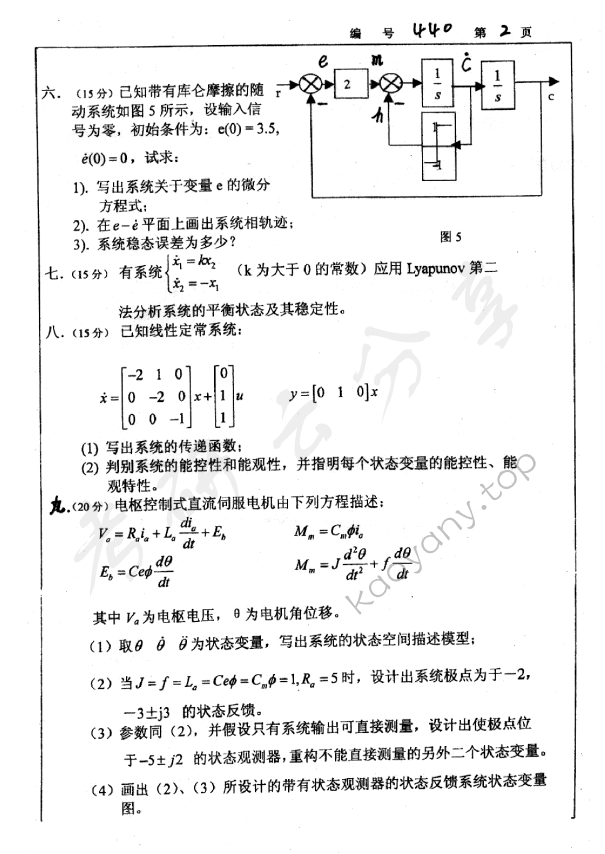 编 号 440 第 2 页
六．（15分）已知带有库仑摩擦的随
动系统如图5所示，设输入信
号为零，初始条件为：e(0)=3.5,
ė(0)=0，试求：
1). 写出系统关于变量 e 的微分
方程式；
2). 在e－ė平面上画出系统相轨迹；
3). 系统稳态误差为多少？
r e － 2 m － h 1/s ċ 1/s c
1
-1
图5
七．（15分）有系统{ẋ₁ = kx₂
ẋ₂ = -x₁
（k 为大于 0 的常数）应用 Lyapunov 第二
法分析系统的平衡状态及其稳定性。
八．（15分）已知线性定常系统：
ẋ = [-2 1 0; 0 -2 0; 0 0 -1] x + [0; 1; 1] u y = [0 1 0]x
(1) 写出系统的传递函数；
(2) 判别系统的能控性和能观性，并指明每个状态变量的能控性、能
观特性。
九.（20分）电枢控制式直流伺服电机由下列方程描述：
Vₐ = Rₐiₐ + Lₐ diₐ/dt + E_b M_m = C_mϕiₐ
E_b = Ceϕ dθ/dt M_m = J d²θ/dt² + f dθ/dt
其中 Vₐ为电枢电压，θ为电机角位移。
（1）取θ θ̇ θ̈为状态变量，写出系统的状态空间描述模型；
（2）当J = f = Lₐ = Ceϕ = C_mϕ = 1, Rₐ = 5时，设计出系统极点为于－2，
－3±j3 的状态反馈。
（3）参数同（2），并假设只有系统输出可直接测量，设计出使极点位
于-5± j2 的状态观测器，重构不能直接测量的另外二个状态变量。
（4）画出（2）、（3）所设计的带有状态观测器的状态反馈系统状态变量
图。
考研云分享
kaoyany.top